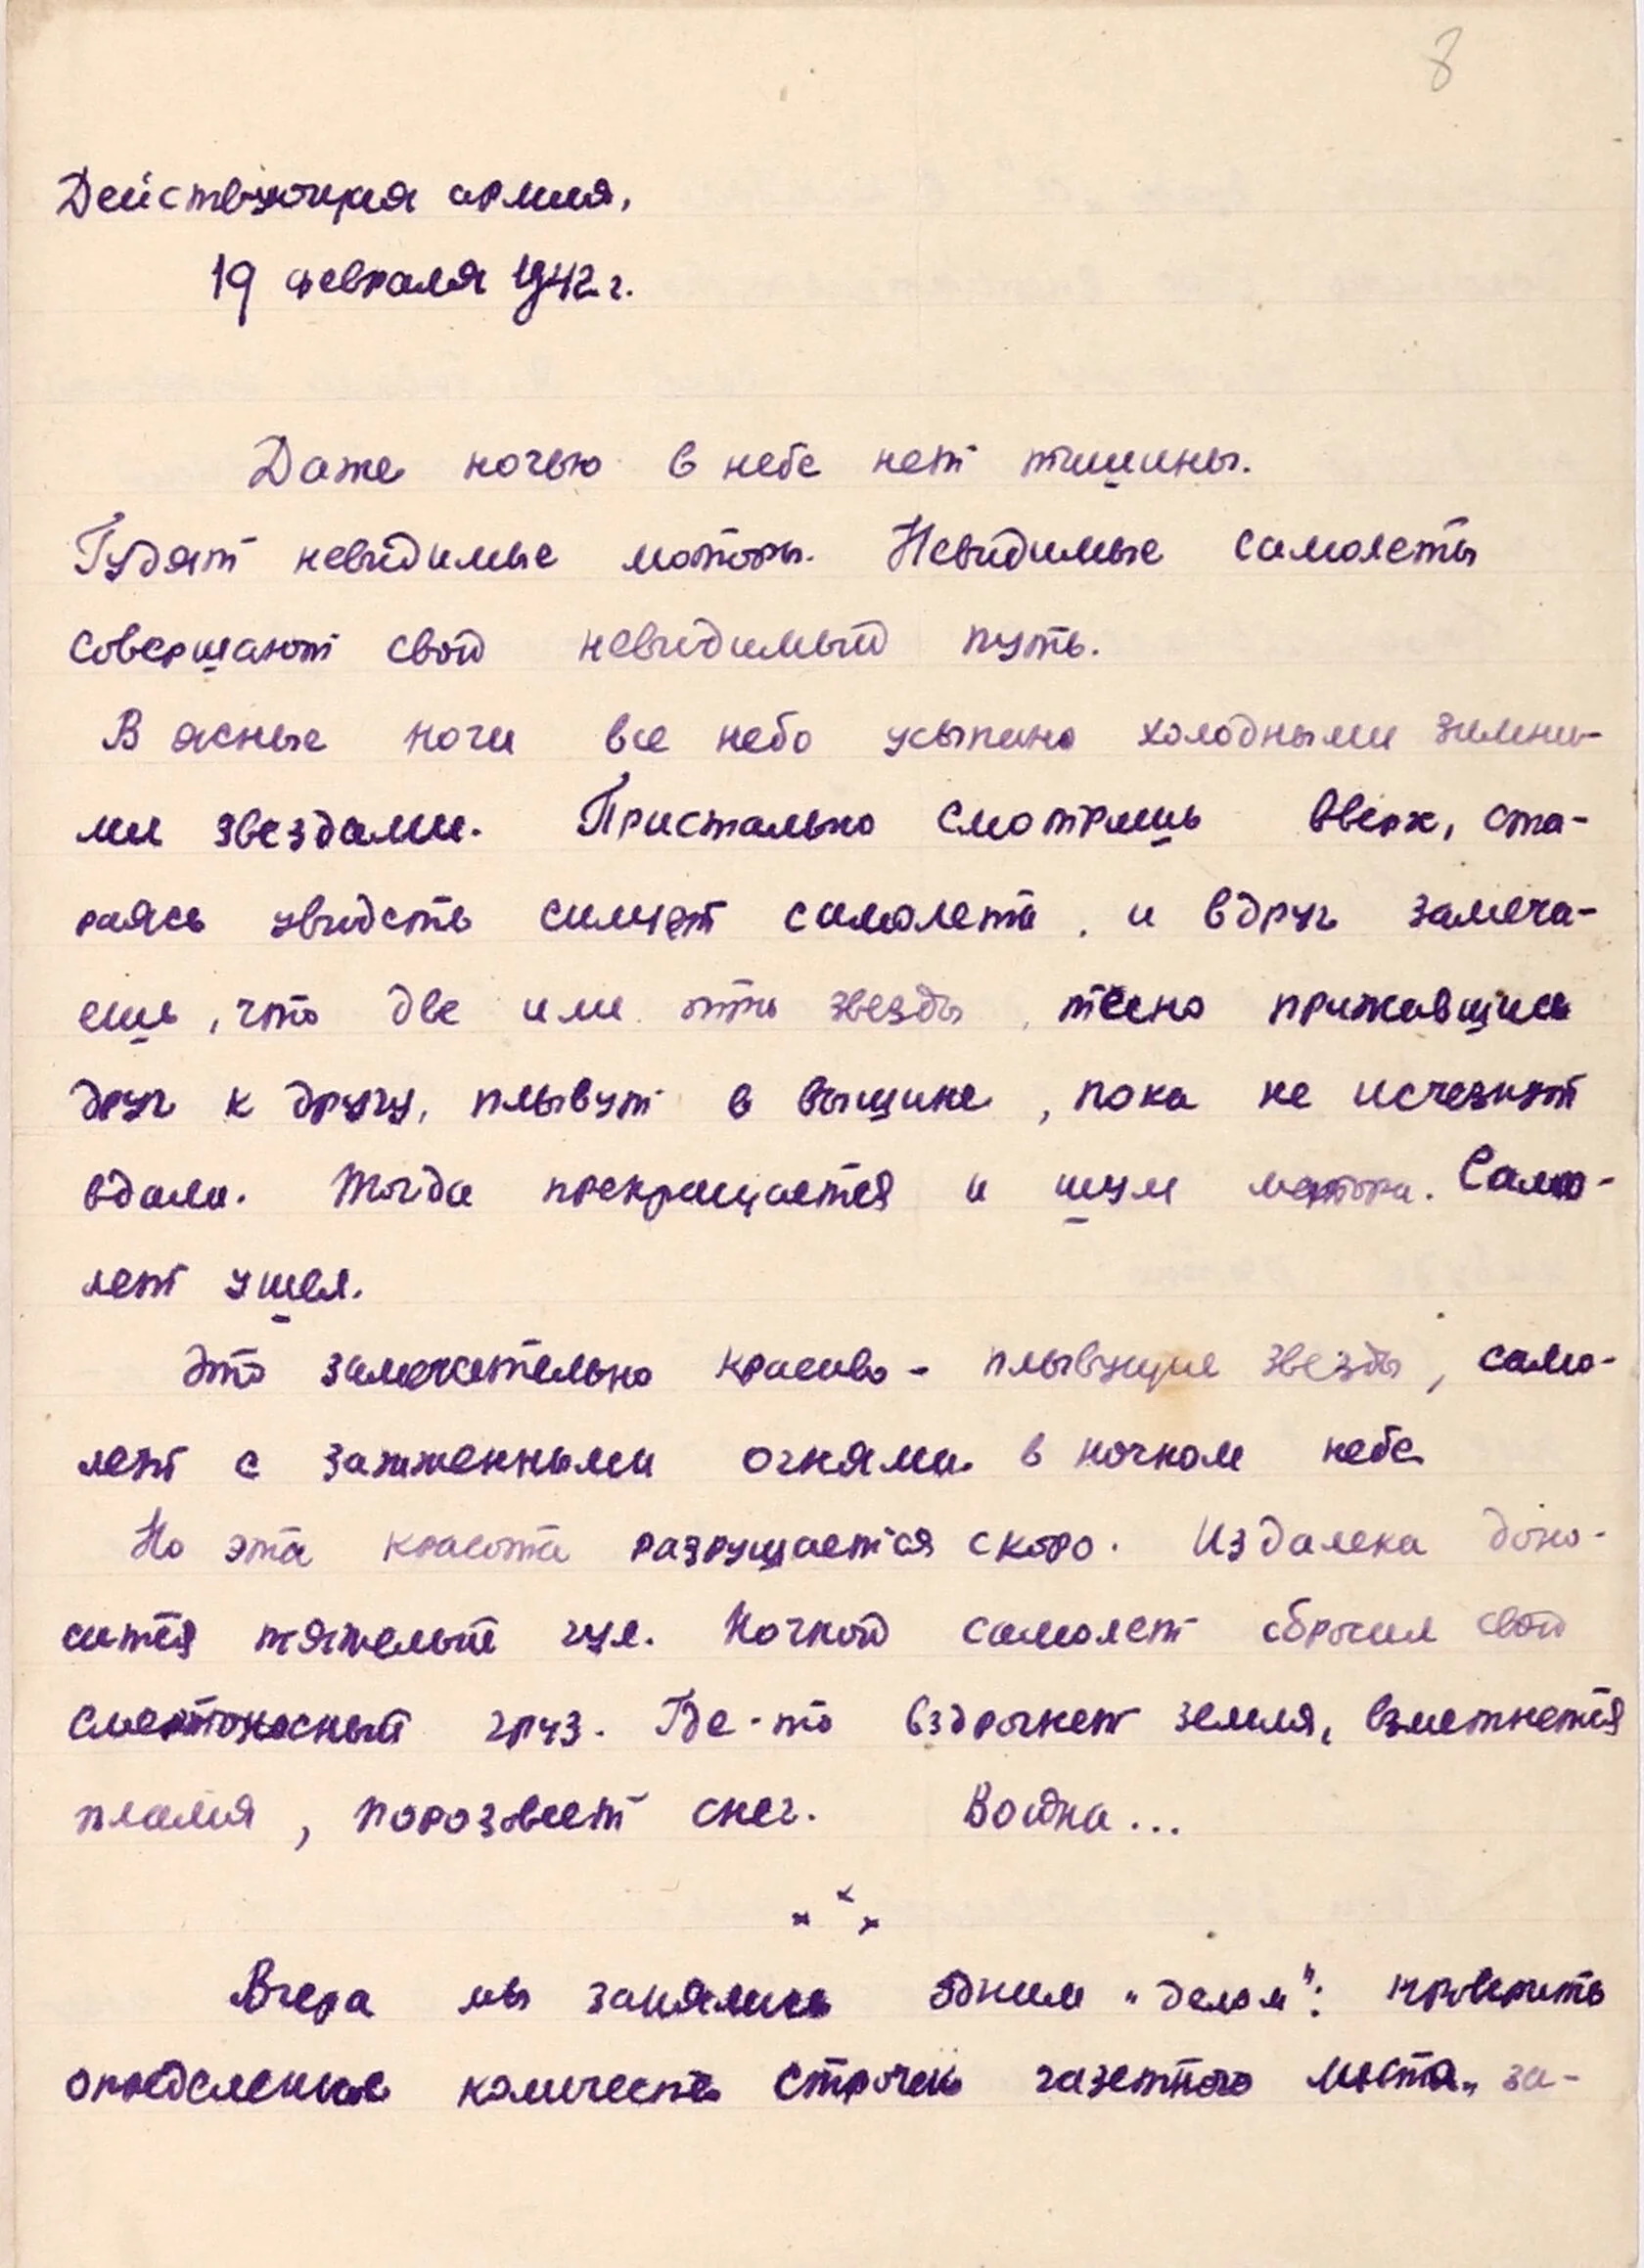 8
Действующая армия,
19 февраля 1942 г.
Даже ночью в небе нет тишины.
Гудят невидимые моторы. Невидимые самолеты
совершают свой невидимый путь.
В ясные ночи все небо усыпано холодными зимни-
ми звездами. Пристально смотришь вверх, ста-
раясь увидеть силуэт самолета, и вдруг замеча-
ешь, что две или три звезды, тесно прижавшись
друг к другу, плывут в вышине, пока не исчезнут
вдали. Тогда прекращается и шум мотора. Само-
лет ушел.
Это замечательно красиво - плывущие звезды, само-
лет с зажженными огнями в ночном небе
Но эта красота разрушается скоро. Издалека доно-
сится тяжелый гул. Ночной самолет сбросил свой
смертоносный груз. Где-то вздрогнет земля, взметнется
пламя, порозовеет снег. Война...
Вчера мы занялись одним "делом": проверить
определенное количество строчек газетного места, за-